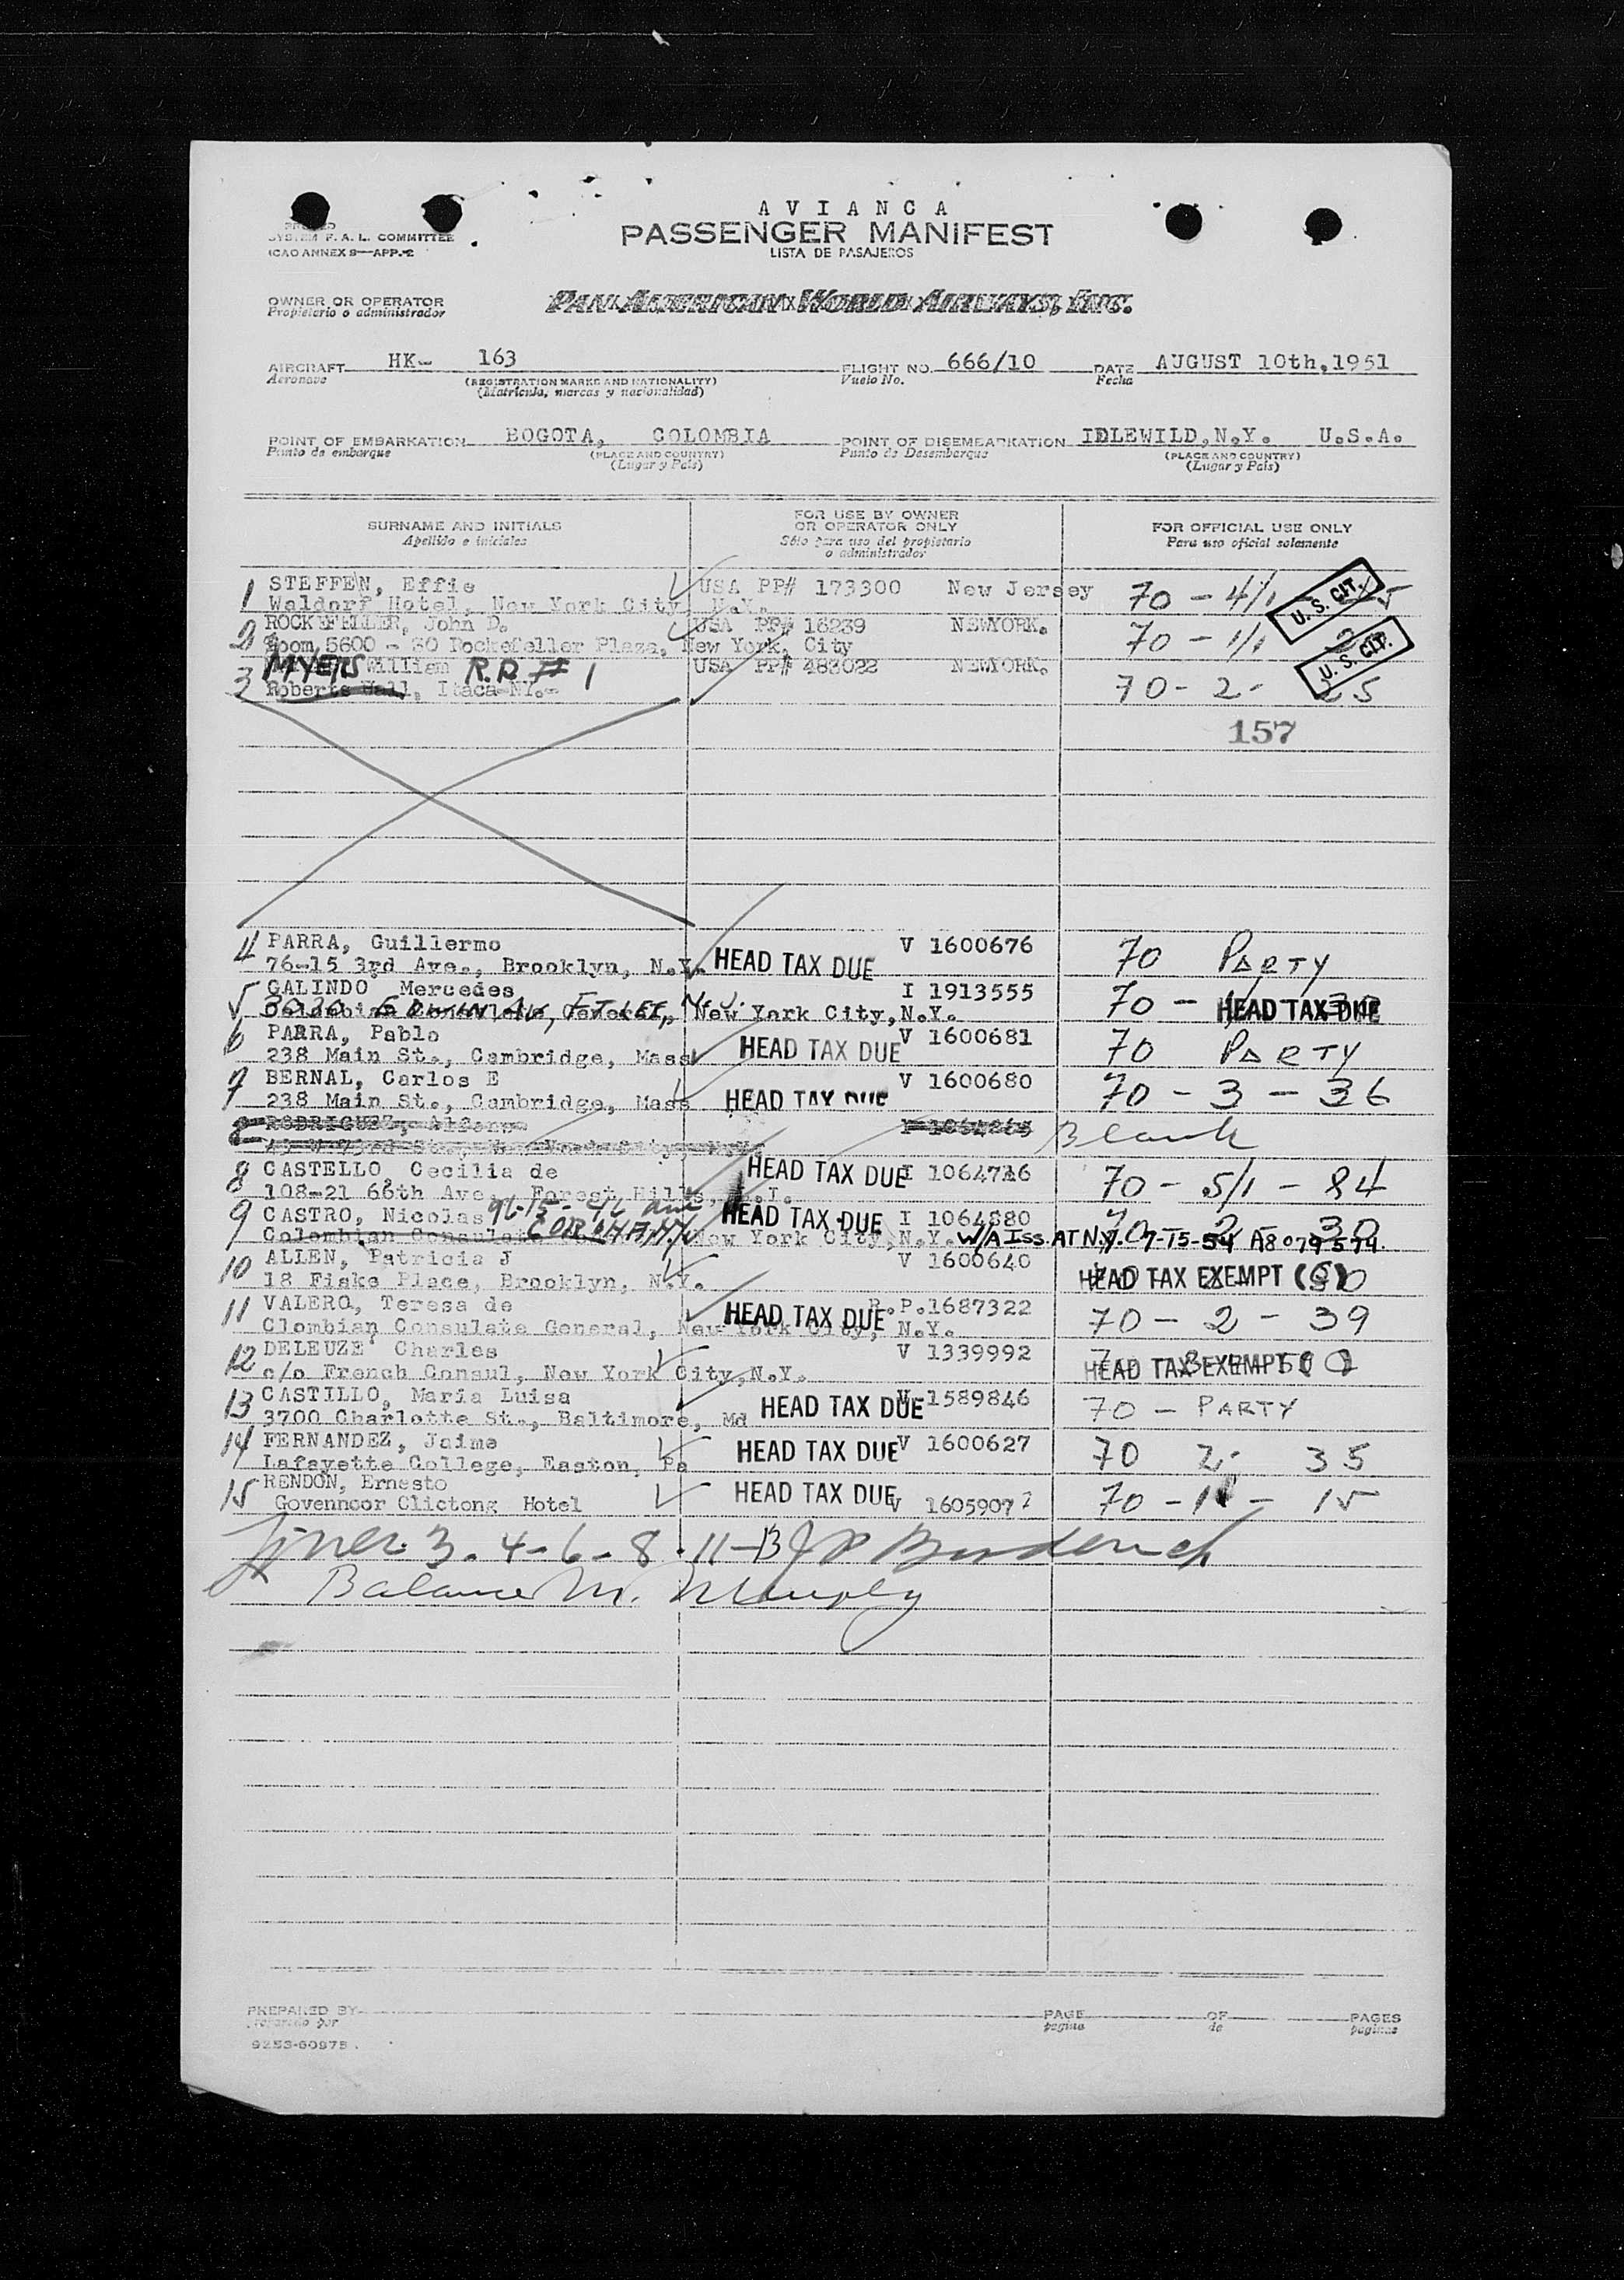 AVIANCA
PASSENGER MANIFEST
LISTA DE PASAJEROS
SYSTEM F. A. L. COMMITTEE
ICAO ANNEX 9—APP.-2
OWNER OR OPERATOR
Propietario o administrador
PAN AMERICAN WORLD AIRWAYS, INC.
AIRCRAFT HK- 163 FLIGHT NO. 666/10 DATE AUGUST 10th,1951
Aeronave (REGISTRATION MARKS AND NATIONALITY) Vuelo No. Fecha
(Matrícula, marcas y nacionalidad)
POINT OF EMBARKATION BOGOTA, COLOMBIA POINT OF DISEMBARKATION IDLEWILD,N.Y. U.S.A.
Punto de embarque (PLACE AND COUNTRY) Punto de Desembarque (PLACE AND COUNTRY)
(Lugar y País) (Lugar y País)
SURNAME AND INITIALS FOR USE BY OWNER OR OPERATOR ONLY FOR OFFICIAL USE ONLY
Apellido e iniciales Sólo para uso del propietario o administrador Para uso oficial solamente
1 STEFFEN, Effie USA PP# 173300 New Jersey 70 - 4/1 U. S. CIT.
Waldorf Hotel, New York City, N.Y.
2 ROCKEFELLER, John D. USA PP# 16239 NEWYORK. 70 - 1/1 U. S. CIT.
Room 5600 - 30 Rockefeller Plaza, New York, City
3 MYERS William R.R # 1 USA PP# 483022 NEWYORK.
Roberts Hall, Itaca NY.- 70 - 2 - 25
157
4 PARRA, Guillermo V 1600676 70 PARTY
76-15 3rd Ave., Brooklyn, N.Y. HEAD TAX DUE
5 GALINDO Mercedes I 1913555 70 - HEAD TAX DUE
New York City,N.Y.
6 PARRA, Pablo V 1600681 70 PARTY
238 Main St., Cambridge, Mass HEAD TAX DUE
7 BERNAL, Carlos E V 1600680 70 - 3 - 36
238 Main St., Cambridge, Mass HEAD TAX DUE
RODRIGUEZ, Alfonso Blank
8 CASTELLO, Cecilia de HEAD TAX DUE I 1064716 70 - 5/1 - 84
108-21 66th Ave., Forest Hills,
9 CASTRO, Nicolas 96-15- HEAD TAX DUE I 1064880
Colombian Consulate New York City,N.Y. W/A ISS. AT N.Y. 7-15-54 A8079574
10 ALLEN, Patricia J V 1600640
18 Fiske Place, Brooklyn, N.Y. HEAD TAX EXEMPT
11 VALERO, Teresa de HEAD TAX DUE R.P.1687322 70 - 2 - 39
Clombian Consulate General, New York City, N.Y.
12 DELEUZE Charles V 1339992 HEAD TAX EXEMPT
c/o French Consul, New York City,N.Y.
13 CASTILLO, Maria Luisa HEAD TAX DUE 1589846 70 - PARTY
3700 Charlotte St., Baltimore, Md
14 FERNANDEZ, Jaime HEAD TAX DUE V 1600627 70 2- 35
Lafayette College, Easton, Pa
15 RENDON, Ernesto HEAD TAX DUE V 1605907 70 - 1 - 15
Govennoor Clictong Hotel
Lines 3 - 4 - 6 - 8 - 11 - 13
Balance M. Murphy
PREPARED BY PAGE OF PAGES
preparado por pagina de páginas
9253-60975